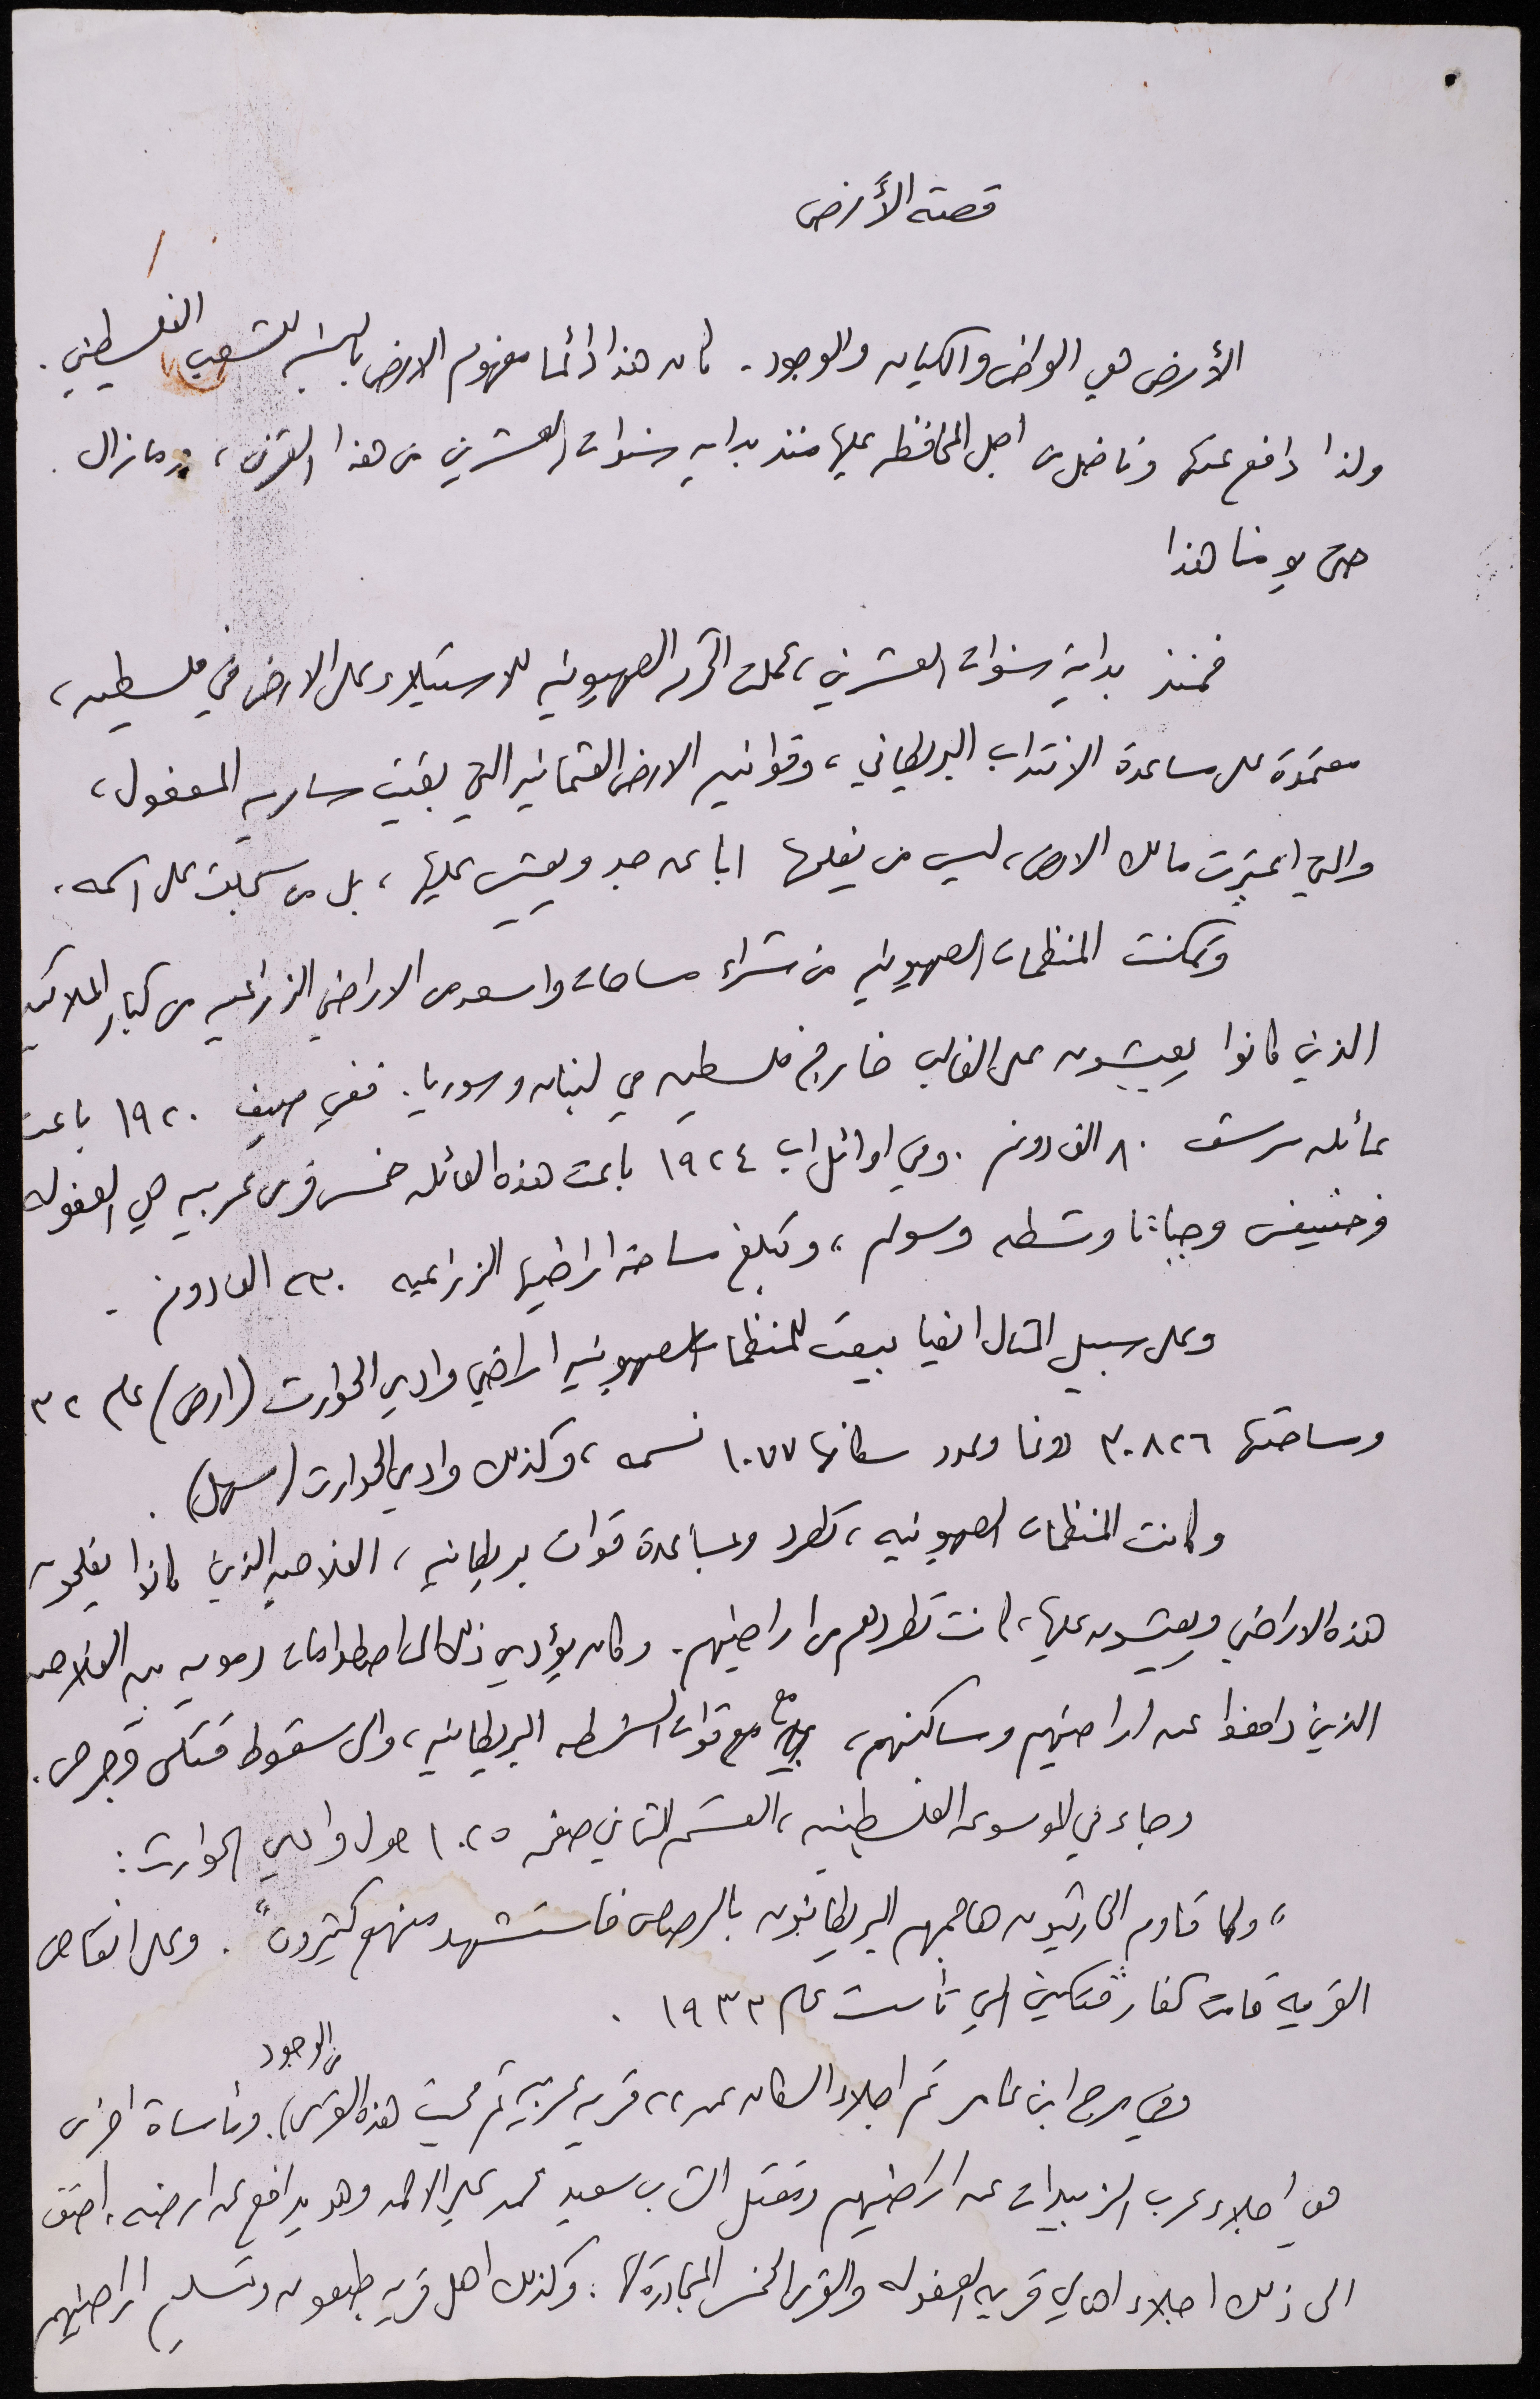 قصة الأرض
الأرض هي الوطن والكيان والوجود. كان هذا دائما مفهوم الارض بالنسبه للشعب الفلسطيني.
ولذا دافع عنها وناضل من اجل المحافظه عليها منذ بدايه سنوات العشرين من هذا القرن، وما زال
حتى يومنا هذا
فمنذ بداية سنوات العشرين، عملت الحركه الصهيونيه للاستيلاء على الارض في فلسطين،
معتمدة على مساعدة الانتداب البريطاني، وقوانين الارض العثمانيه التي بقيت ساريه المفعول،
والتي اعتبرت مالك الارض، ليس من يفلحها ابا عن جد ويعيش عليها، بل من سجلت على اسمه.
وتمكنت المنظمات الصهيونيه من شراء مساحات واسعه من الاراضي الزراعيه من كبار الملاكين
الذين كانوا يعيشون على الغالب خارج فلسطين في لبنان وسوريا. ففي صيف ١٩٢٠ باعت
عائله سرسق ٨٠ الف دونم. وفي اوائل اب ١٩٢٤ باعت هذه العائله خمس قرى عربيه هي العفوله
وخنيفس وجباتا وشطه وسولم، وتبلغ مساحة اراضيها الزراعيه الف دونم.
وعلى سبيل المثال ايضا بيعت للمنظمات الصهيونيه اراضي وادي الحوارث (ارض) عام ٣٢
ومساحتها ٣٠٨٢٦ دونما وعدد سكانها ١٠٧٧ نسمه، وكذلك وادي الحوارث (سهل).
وكانت المنظمات الصهيونيه، تطرد وبمساعدة قوات بريطانيه، الفلاحين الذين كانوا يفلحون
هذه الاراضي ويعيشون عليها، كانت تطردهم من اراضيهم. وكان يؤدي ذلك الى اصطدامات دمويه بين الفلاحين
الذين دافعوا عن اراضيهم ومساكنهم، مع قوات الشرطه البريطانيه، والى سقوط قتلى وجرحى.
وجاء في الموسوعه الفلسطينيه، القسم الثاني صفحه ١٠٢٥ حول وادي الحوارث:
"ولما قاوم الحارثيون هاجمهم البريطانيون بالرصاص فاستشهد منهم كثيرون". وعلى انقاض
القريه قامت كفار فتكين التي تأسست عام ١٩٣٣.
وفي مرج ابن عامر تم اجلاء السكان عن ٢٢ قريه عربيه ثم محيت هذه القرى من الوجود. ومأساة اخرى
هي اجلاء عرب الزبيدات عن اراضيهم ومقتل الشاب سعيد محمد علي الاحمد وهو يدافع عن ارضه، اضف
الى ذلك اجلاء اهالي قريه العفوله والقرى الخمس المجاورة لها. وكذلك اهل قريه طبعون وتسليم اراضيهم